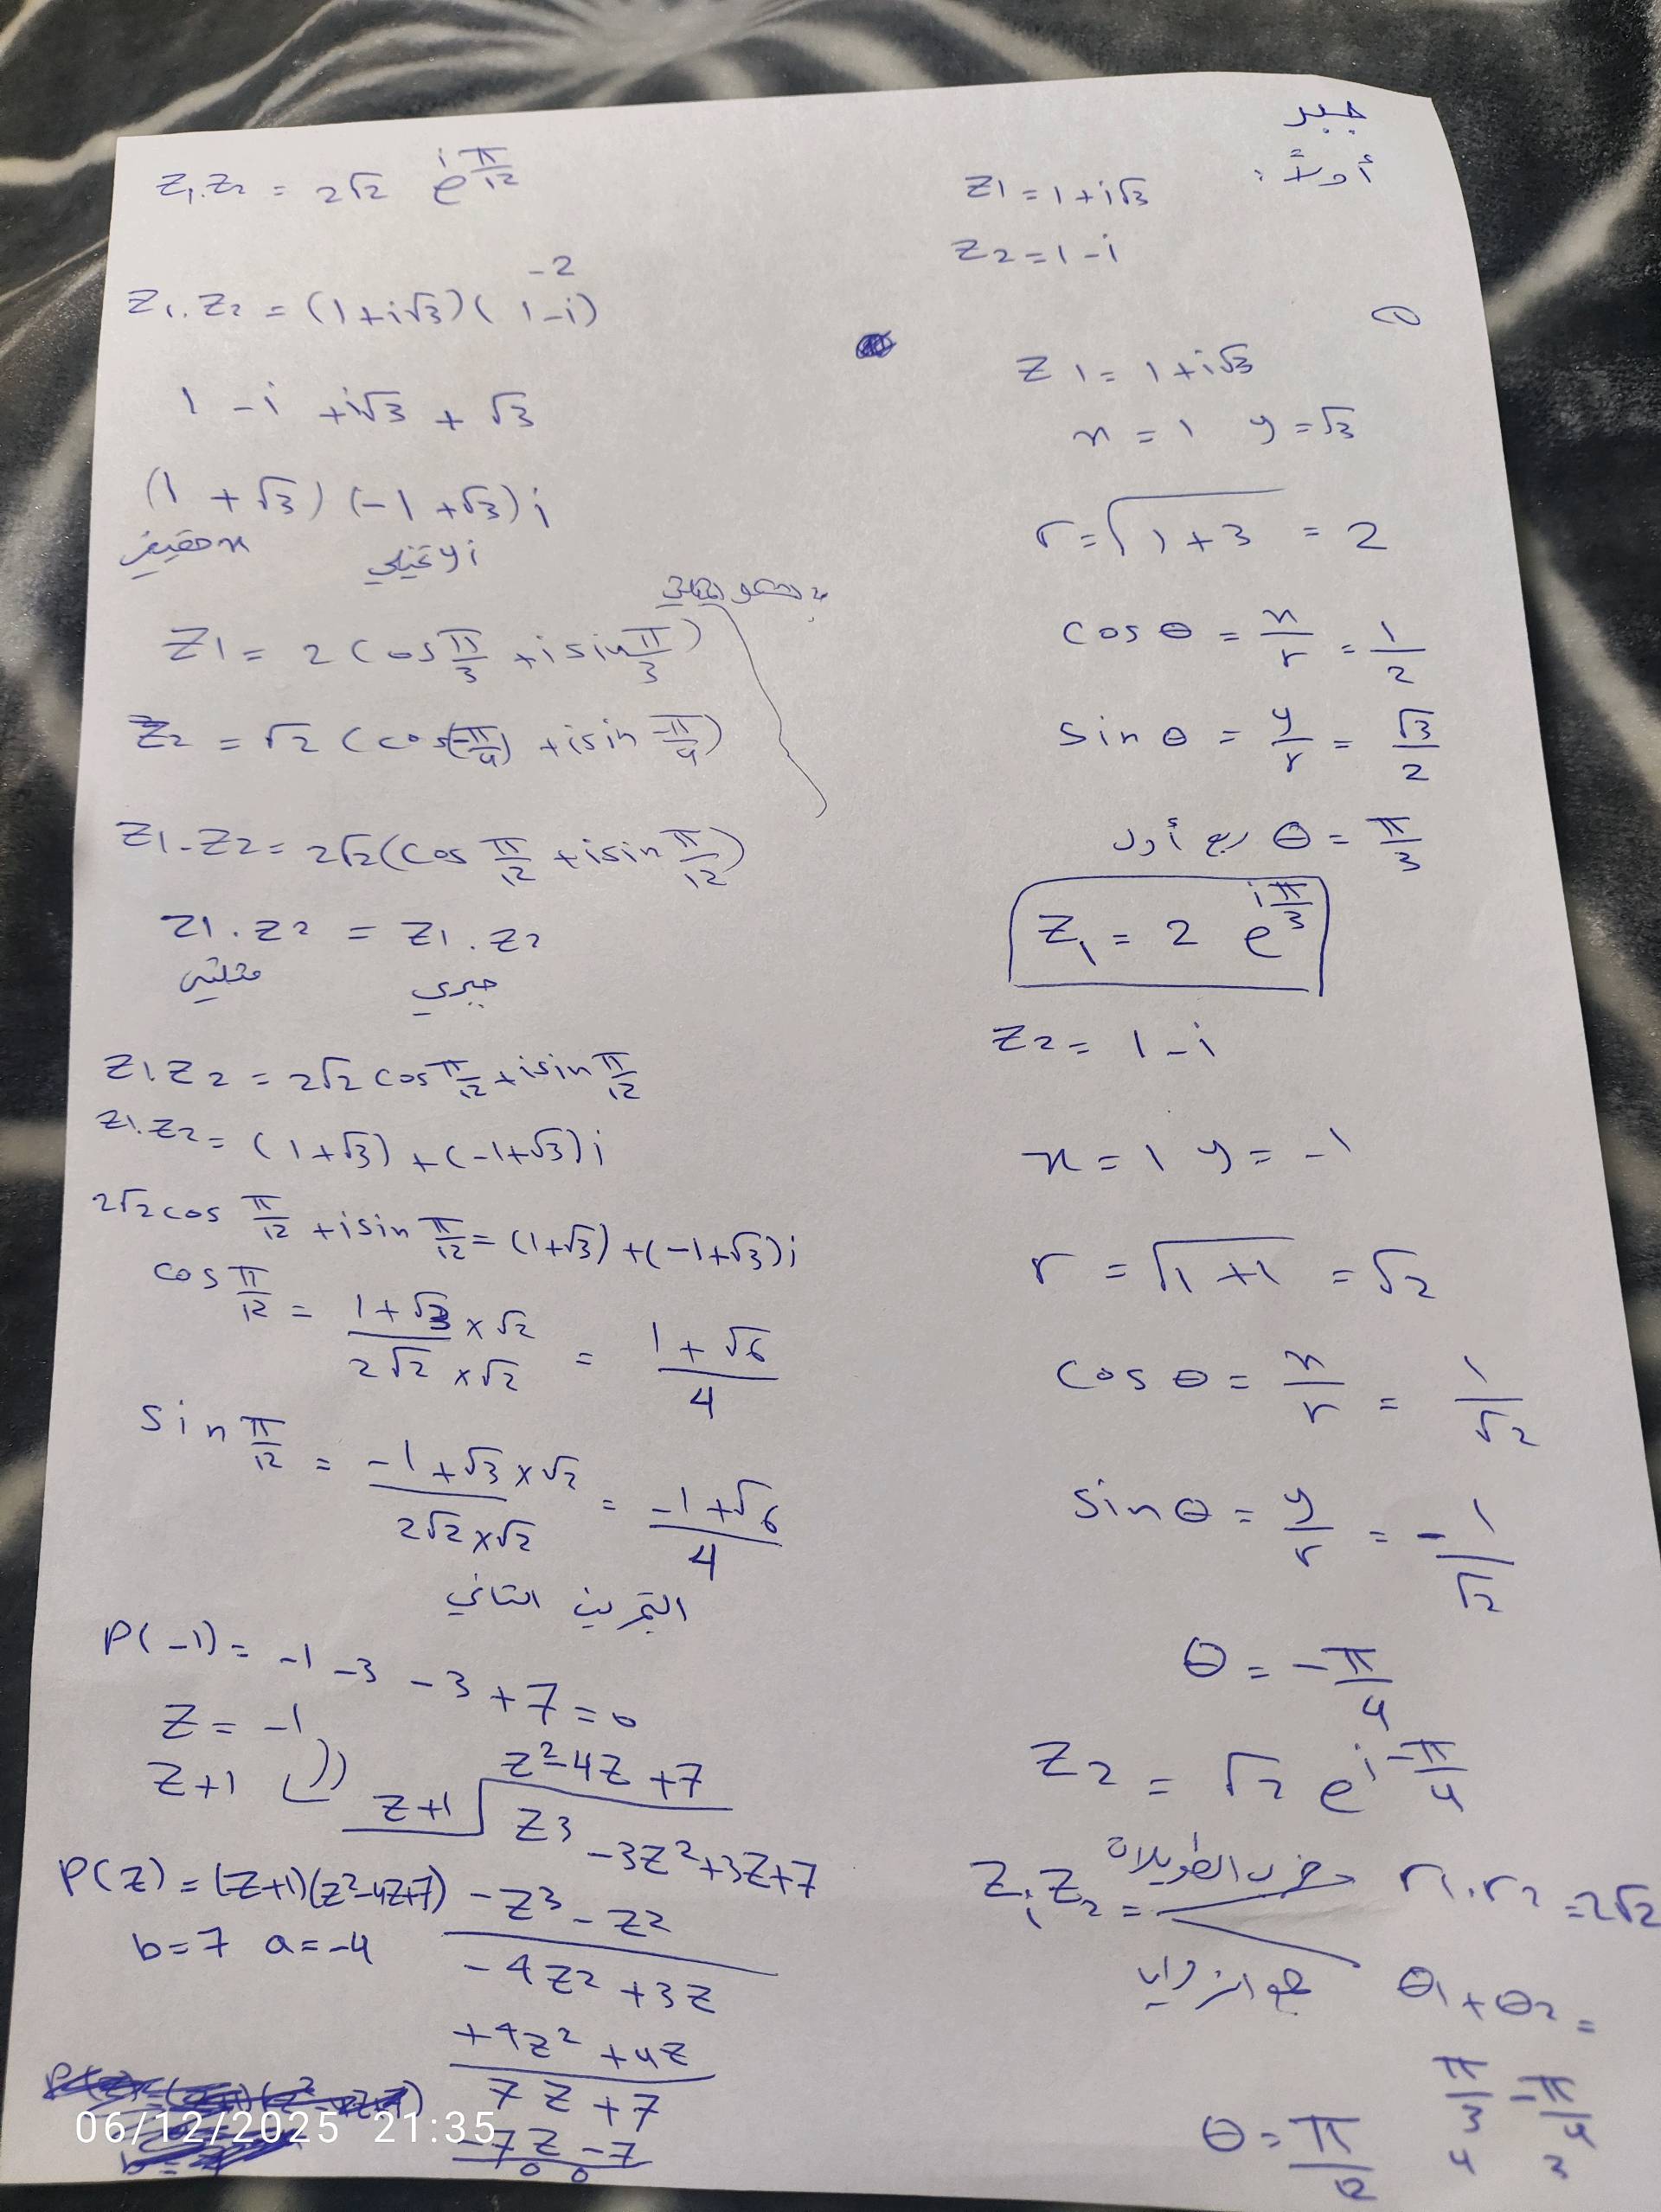 جبر
أولاً:
z1 = 1 + i√3
z2 = 1 - i
①
z1 = 1 + i√3
x = 1 y = √3
r = √(1+3) = 2
cos θ = x/r = 1/2
sin θ = y/r = √3/2
ربع أول θ = π/3
z1 = 2 e^(iπ/3)
z2 = 1 - i
x = 1 y = -1
r = √(1+1) = √2
cos θ = x/r = 1/√2
sin θ = y/r = -1/√2
θ = -π/4
z2 = √2 e^(i -π/4)
z1 z2 = ضرب الطويلات r1.r2 = 2√2
جمع الزوايا θ1 + θ2 =
π/3 - π/4
4 3
θ = π/12
z1.z2 = 2√2 e^(iπ/12)
-2
z1.z2 = (1+i√3)(1-i)
1 - i + i√3 + √3
(1 + √3) (-1 + √3) i
x حقيقي yi لا تخيلي
z1 = 2 (cos π/3 + i sin π/3)
z2 = √2 (cos(-π/4) + i sin -π/4)
z1.z2 = 2√2 (cos π/12 + i sin π/12)
z1.z2 = z1.z2
مثلثي جبري
z1.z2 = 2√2 cos π/12 + i sin π/12
z1.z2 = (1+√3) + (-1+√3) i
2√2 cos π/12 + i sin π/12 = (1+√3) + (-1+√3) i
cos π/12 = (1+√3 × √2)/(2√2 × √2) = (1+√6)/4
sin π/12 = (-1+√3 × √2)/(2√2 × √2) = (-1+√6)/4
التمرين الثاني
P(-1) = -1 -3 -3 +7 = 0
z = -1
z+1
z² - 4z + 7
z+1 z³ - 3z² + 3z + 7
P(z) = (z+1)(z²-4z+7) -z³ - z²
b = 7 a = -4
-4z² + 3z
+4z² + 4z
7z + 7
-7z - 7
0 0
06/12/2025 21:35